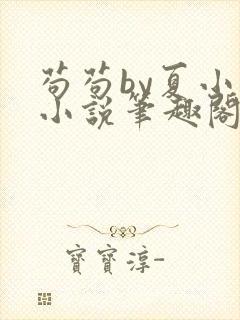 苟苟by夏小
小說筆趣閣
寶寶淳-